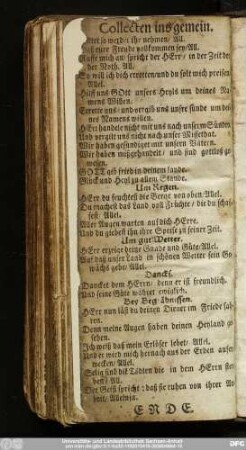 Collecten ins gemein.
so werdet ihr nehmen/ All.
eure Freude vollkommen sey/ All.
Ruffe mich an/ spricht der HErr/ in der Zeit der
der Noth. All.
So will ich dich erretten und du solt mich preisen
All.
Hilff uns GOtt unsers Heyls um deines Na-
mens Willen.
Errette uns/ und vergib uns unsre sünde um dei-
nes Namens willen.
HErr handele nicht mit uns nach unsern Sünden
Und vergilt uns nicht nach unser Missethat.
Wir haben gesündiget mit unsern Vätern.
Wir haben mißgehandelt/ und sind gottloß ge-
wesen.
GOTT gib fried in deinem lande.
Glück und Heyl zu allem Stande.
Um Regen.
HErr du feuchtest die Berge von oben/ All.
Du machest das Land voll Früchte/ die du schaf-
fest/ All.
Aller Augen warten auf dich HErre.
Und du giebest ihn ihre Speise zu seiner Zeit.
Um gut Wetter.
HErr erzeige deine Gnade und Güte/ All.
Auf daß unser Land in schönen Wetter sein Ge-
wächs gebe/ All.
Dancks.
Dancket dem HErrn/ denn er ist freundlich.
Und seine Güte währet ewiglich.
Bey Begräbnissen.
HErr nun läst du deinen Diener im Friede fah-
ren.
Denn meine Augen haben deinen Heyland ge-
sehen.
Ich weiß daß mein Erlöser lebet/ All.
Und er wird mich hernach aus der Erden aufer-
wecken/ All.
Selig sind die Todten die in dem HErrn ster-
ben/ All.
Der Geist spricht: daß sie ruhen von ihrer Ar-
beit/ Alleluja.
ENDE.